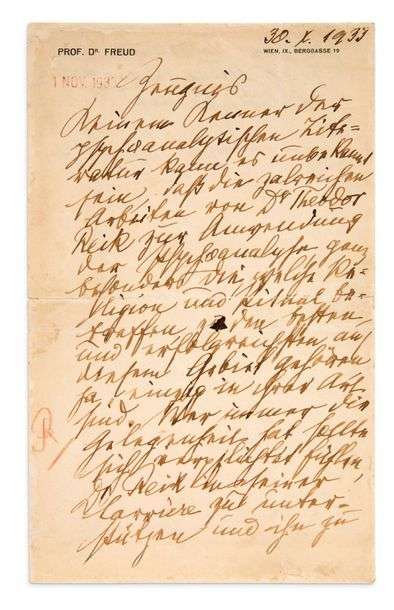 30. X. 1933
PROF. DR. FREUD
WIEN, IX., BERGGASSE 19
1 NOV. 193
Zeugnis
Keinem Kenner der
psychoanalytischen Lite-
ratur kann es unbekannt
sein, daß die zalreichen
Arbeiten von Dr Theodor
Reik zur Anwendung
der Psychoanalyse ganz
besonders die welche Re-
ligion und Ritual be-
treffen zu den besten
und erfolgreichsten auf
diesem Gebiet gehören
ja einzig in ihrer Art
sind. Wer immer die
Gelegenheit hat sollte
sich verpflichtet fühlen,
Dr Reik in seiner
Karriere zu unter-
stützen und ihn zu